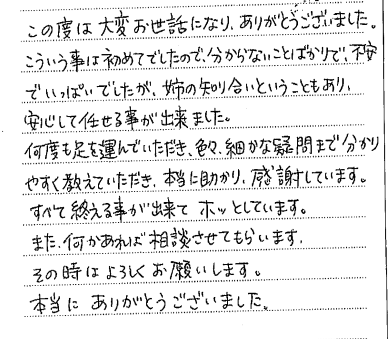 この度は大変お世話になり、ありがとうございました。
こういう事は初めてでしたので、分からないことばかりで、不安
でいっぱいでしたが、姉の知り合いということもあり、
安心して任せる事が出来ました。
何度も足を運んでいただき、色々、細かな疑問まで分かり
やすく教えていただき、本当に助かり、感謝しています。
すべて終える事が出来て ホッとしています。
また、何かあれば相談させてもらいます。
その時はよろしくお願いします。
本当に ありがとうございました。